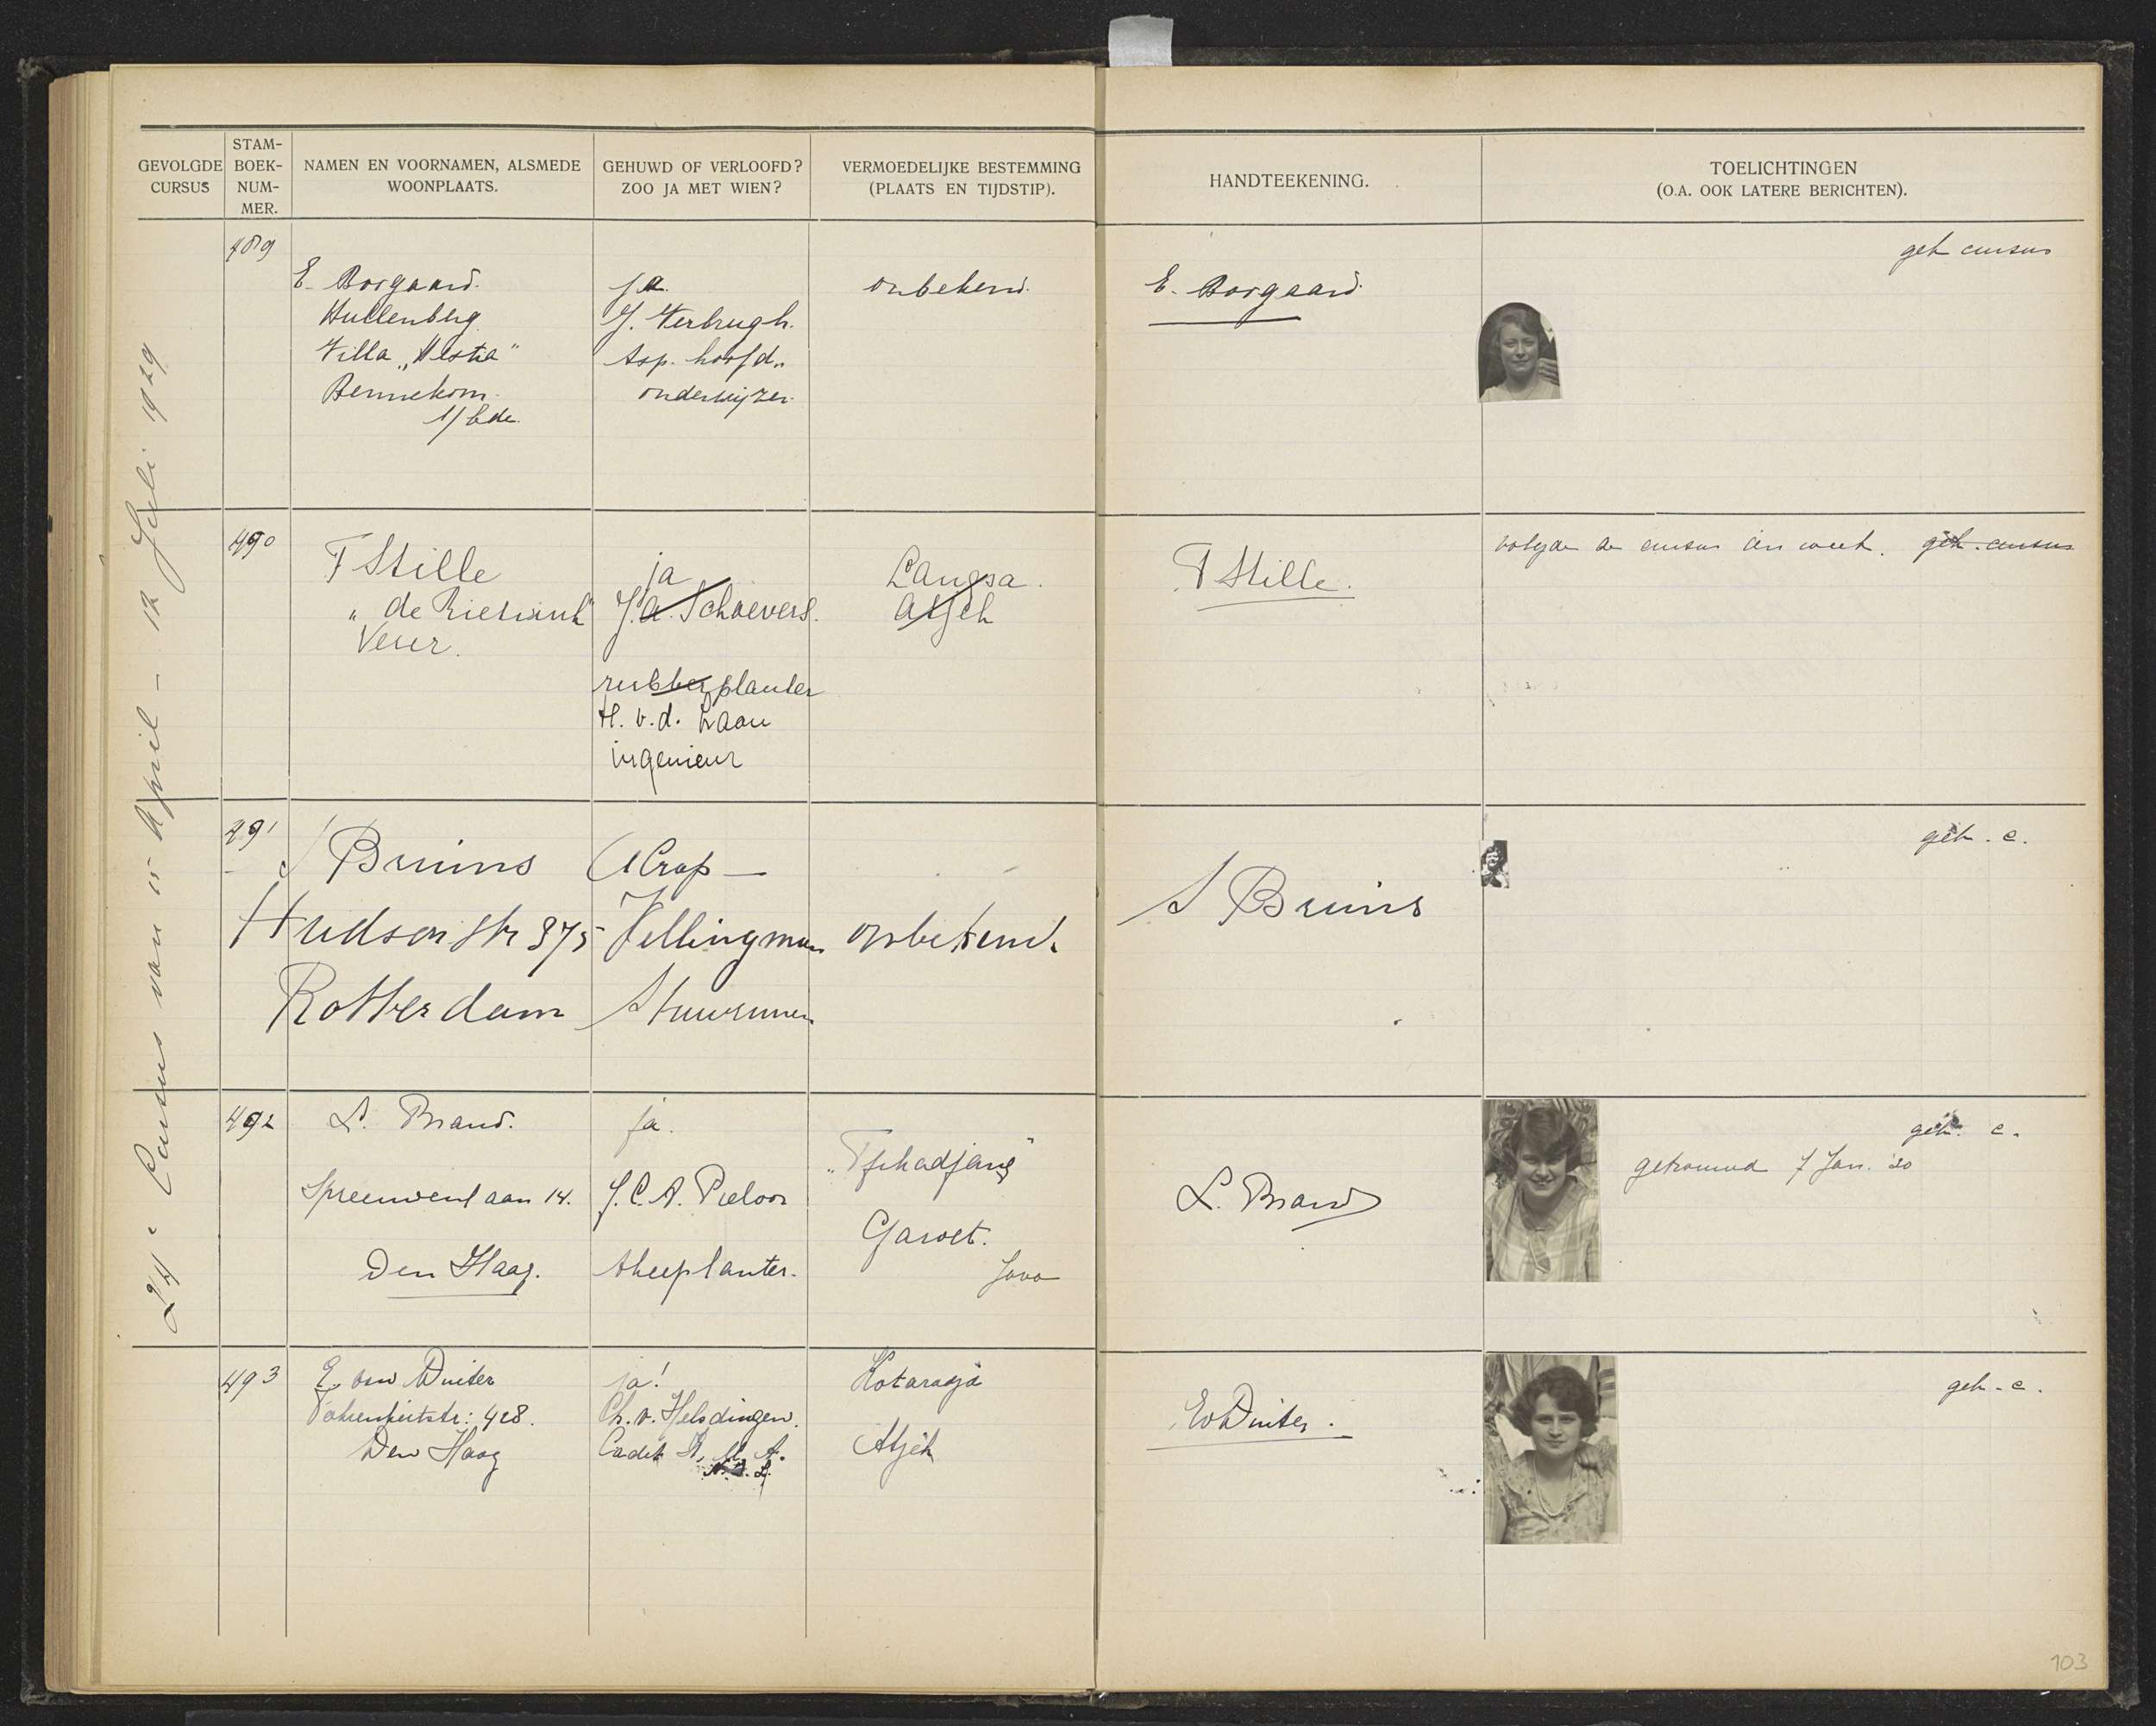 GEVOLGDE CURSUS
STAM-BOEK-NUM-MER.
NAMEN EN VOORNAMEN, ALSMEDE WOONPLAATS.
GEHUWD OF VERLOOFD? ZOO JA MET WIEN?
VERMOEDELIJKE BESTEMMING (PLAATS EN TIJDSTIP).
HANDTEEKENING.
TOELICHTINGEN (O.A. OOK LATERE BERICHTEN).
24e Cursus van 15 April - 12 Juli 1929
489
E. Borgaard.
Hullenberg
Villa „Hestia"
Bennekom.
b/ Ede.
ja.
J. Verbrugh.
Asp. hoofd„
onderwijzer.
onbekend.
E. Borgaard.
geh cursus
490
F Stille
Velser.
ja
J.A. Schoevers.
rubberplanter
H. v.d. Laan
ingenieur
Langsa.
Atjeh
F Stille.
volgde de cursus één week. geh. cursus
491
J Bruins
Hudsonstr 375
Rotterdam
Stuurman
onbekend
J Bruins
geh. c.
492
L. Brand.
Spreeuwenlaan 14.
Den Haag.
ja.
J.C.A. Pieloor
theeplanter.
Garoet.
Java
L. Brand
geh. c.
getrouwd 7 Jan. '30
493
E. van Duiter
Fahrenheitstr: 428.
Den Haag
ja!
Ch. v. Helsdingen.
Cadet K.M.A.
Kotaradja
Atjeh
EvDuiter.
geh. c.
103